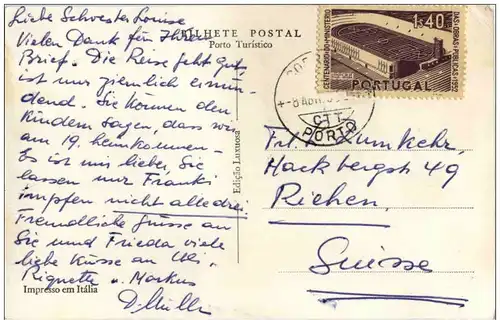 Liebe Schwester Louise
Vielen Dank für Ihren
Brief. Die Reise geht gut,
ist nur ziemlich ermü-
dend. Sie können den
Kindern sagen, dass wir
am 19. heimkommen-
Es ist mir lieber, Sie
lassen nur Franki
impfen nicht alle drei.
Freundliche Grüsse an
Sie und Frieda viele
liebe Küsse an Uli,
Riquette u. Markus
BILHETE POSTAL
Porto Turístico
Edição Luxuosa
Impresso em Itália
1$40
CENTENÁRIO DO MINISTÉRIO
DAS OBRAS PÚBLICAS 1952
PORTUGAL
CTT
PORTO
Frl. L. Zumkehr,
Hackbergst 49
Riehen.
Suisse